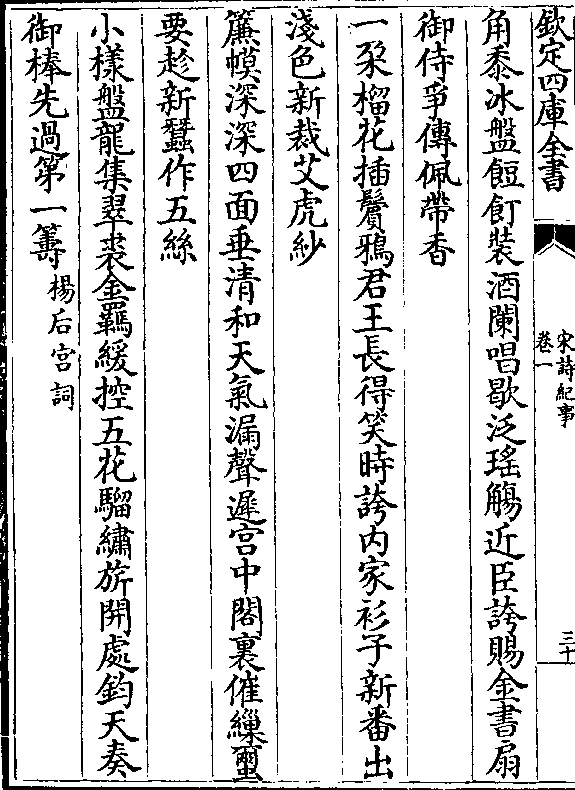 欽定四庫全書
宋詩紀事
卷一
三十
角黍冰盤餖飣裝酒闌唱歇泛瑤觴近臣誇賜金書扇
御侍爭傳佩帶香
一朶榴花插鬢鴉君王長得笑時誇内家衫子新番出
淺色新裁艾虎紗
簾幙深深四面垂清和天氣漏聲遲宫中閤裏催繅蠒
要趁新蠶作五絲
小様盤龍集翠裘金羈緩控五花騮繡旂開處鈞天奏
御棒先過第一籌楊后宫詞